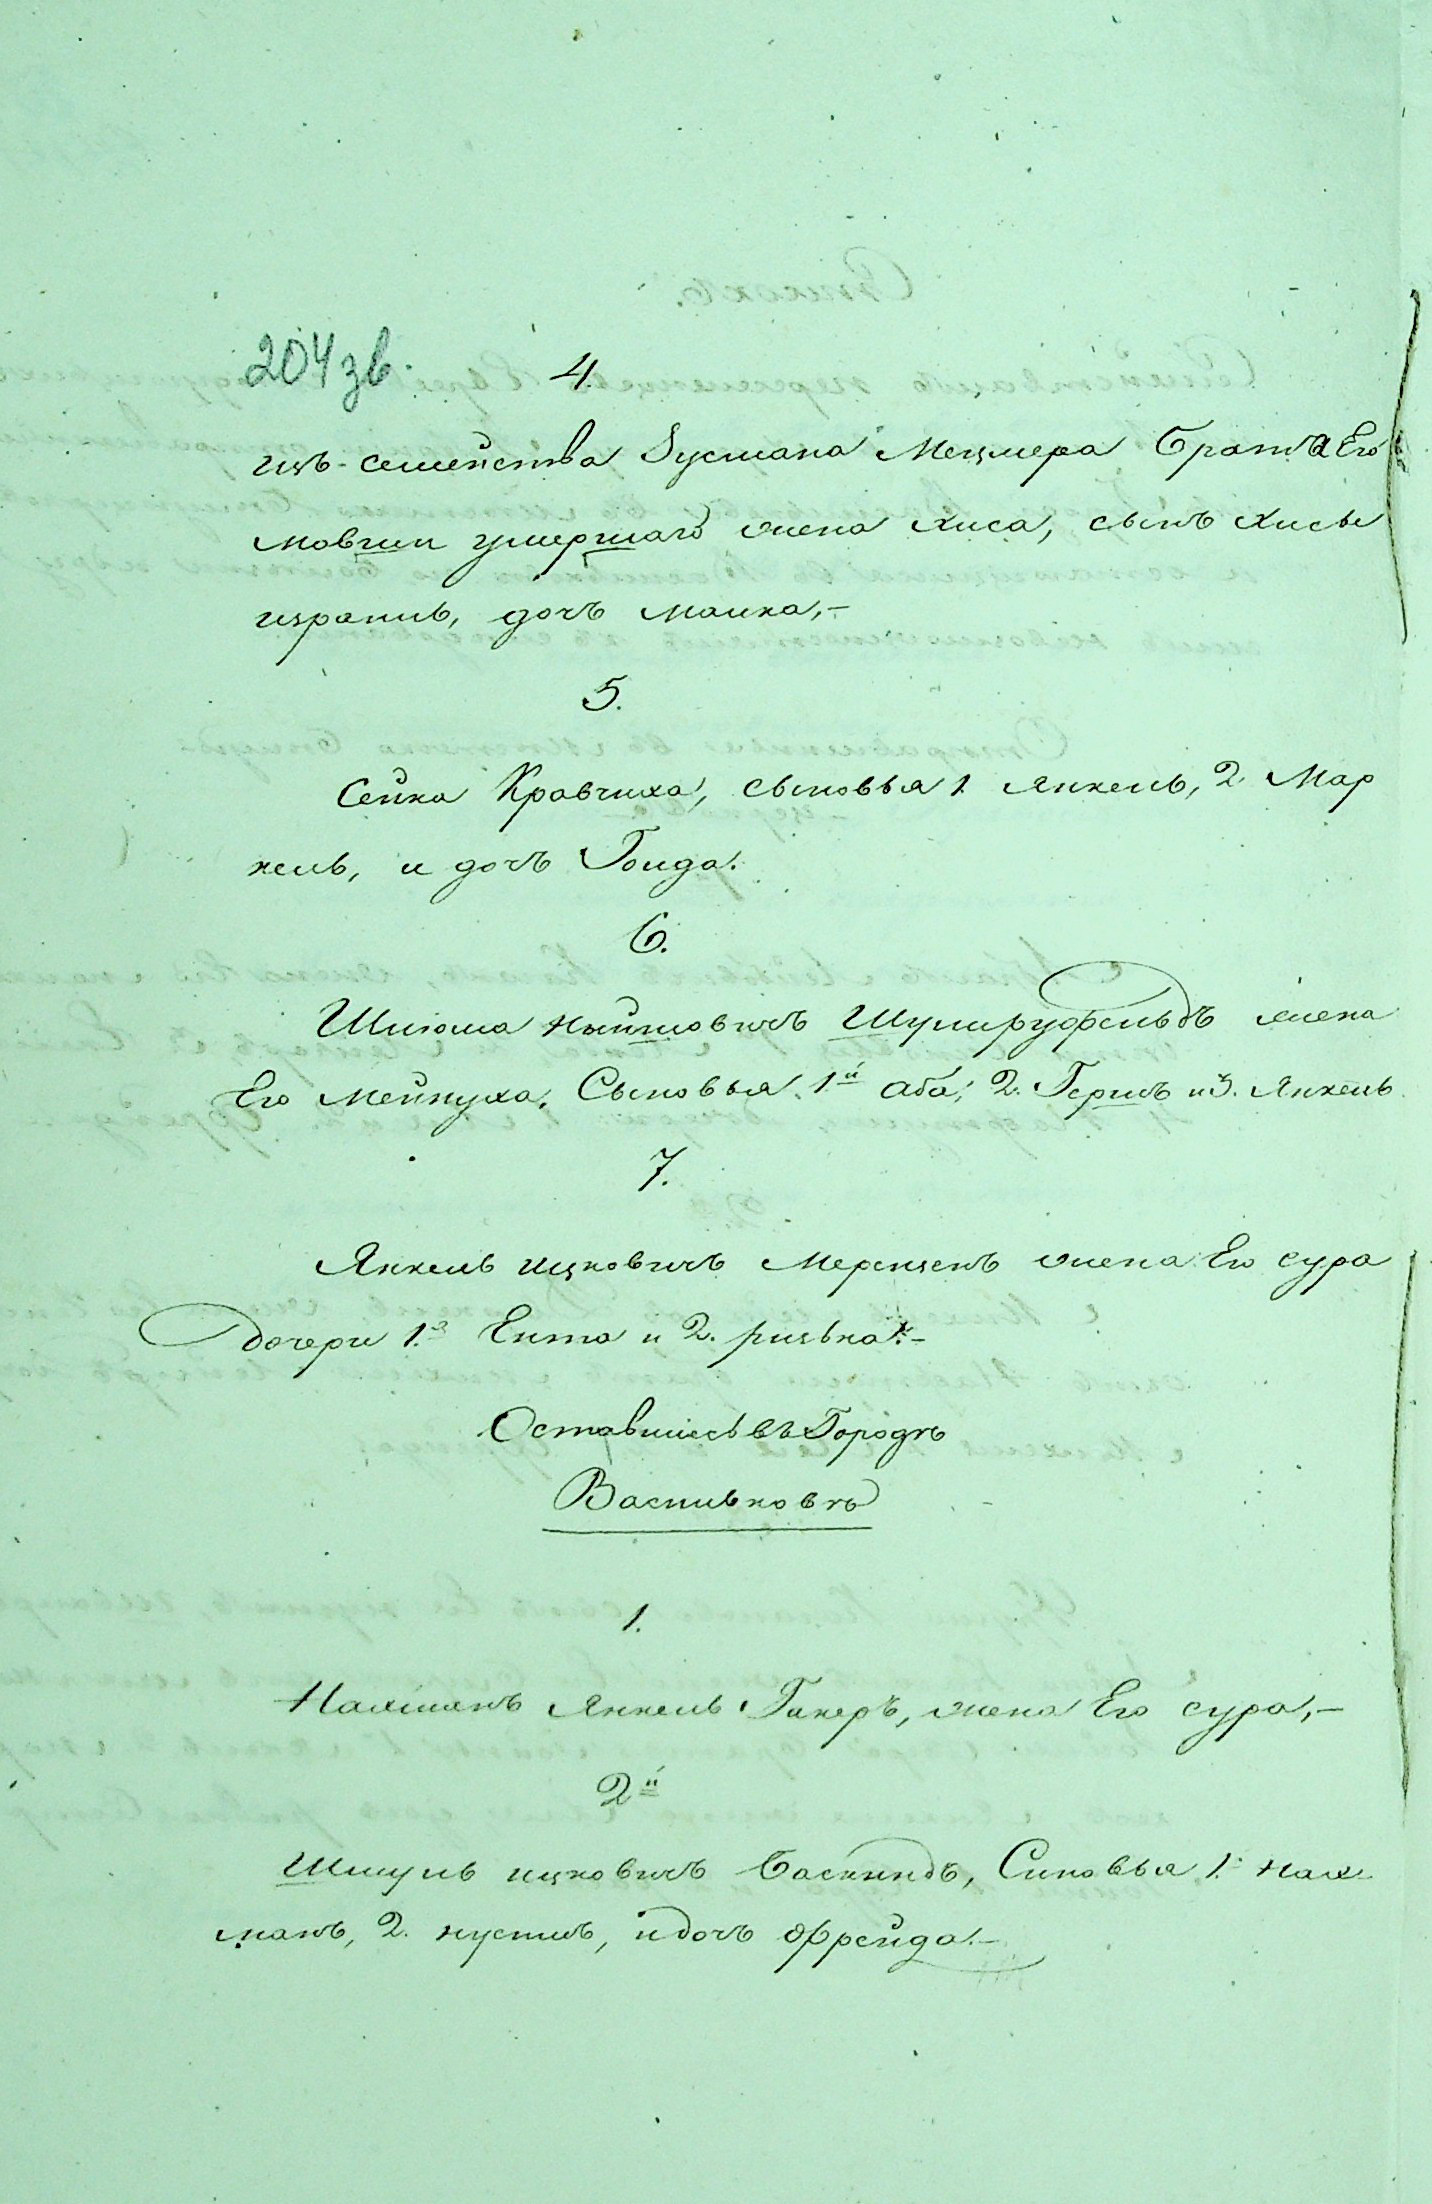 204 зв.
4.
изъ семейства Зусмана Мецмера Брата Его
мовши умершаго жена хиса, сынъ хисы
израиль, дочъ малка,-
5.
Сейка Кравчиха, сыновья 1. янкель, 2 Мар
кель, и дочъ Голда.
6.
Шлюма Шулируфельдъ жена
Его Мейнуха, Сыновья 1й аба, 2. Гершъ и 3. Янкель
7.
Янкель ицковичъ Мерензенъ жена Его сура
дочери 1.я Ента и 2. ривка.-
Оставшiесь въ Городѣ
Васильковѣ
1.
Нахманъ янкель Гикеръ, жена Его сура,-
2й
Шмуль ицковичъ Баскиндъ, Синовья 1. нах-
манъ, 2. нусинъ, и дочъ Фрейда.-